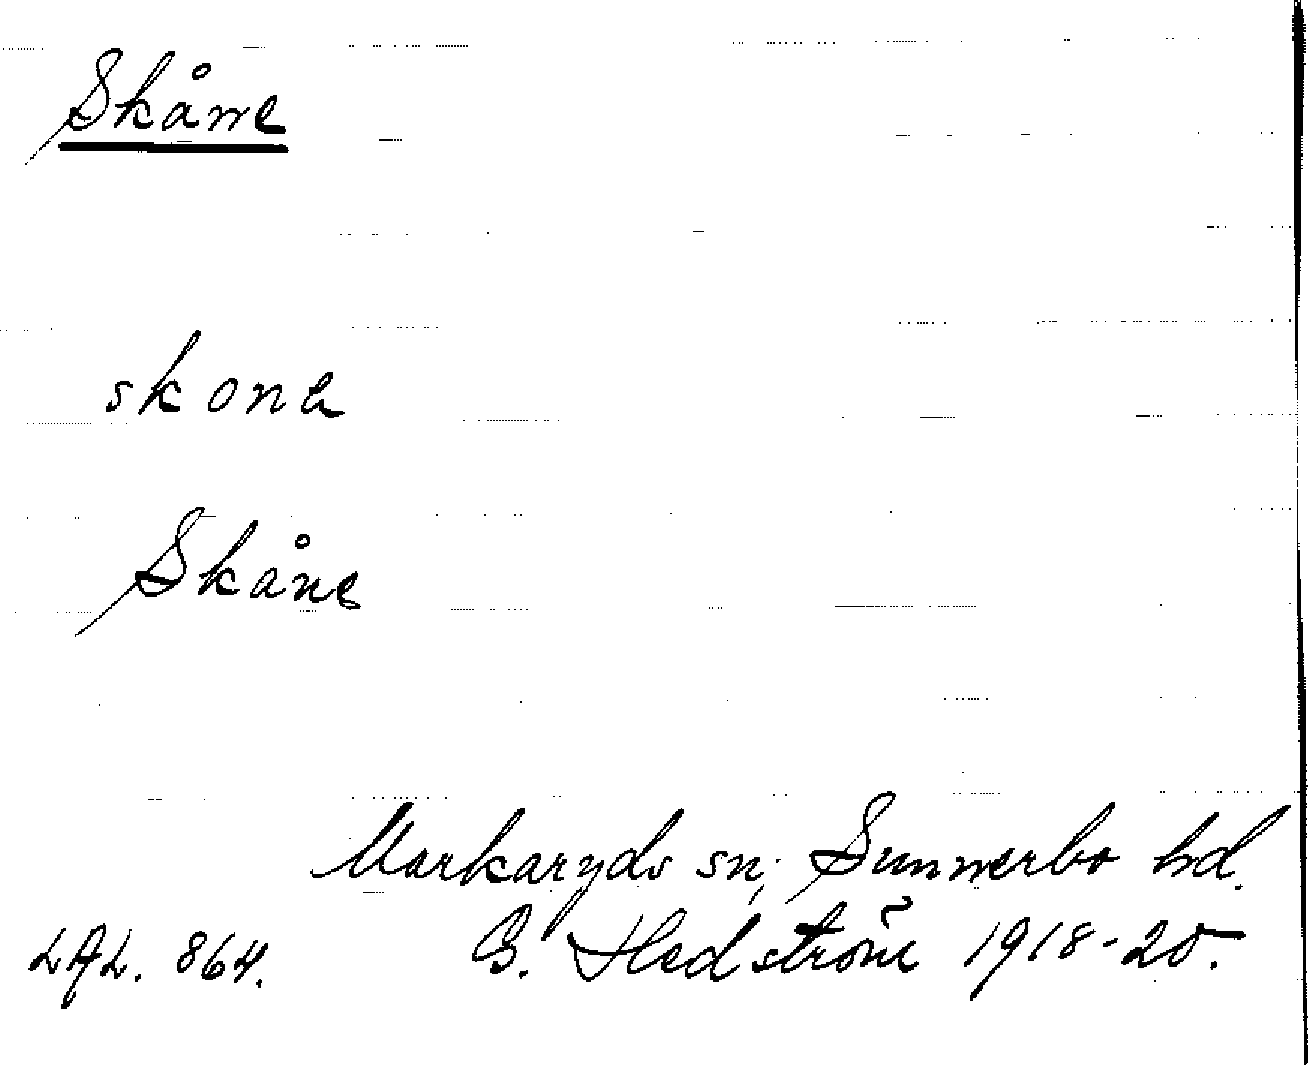 Skåne
skona
Skåne
Markaryds sn; Sunnerbo hd.
LAL. 864. G. Hedström 1918-20.